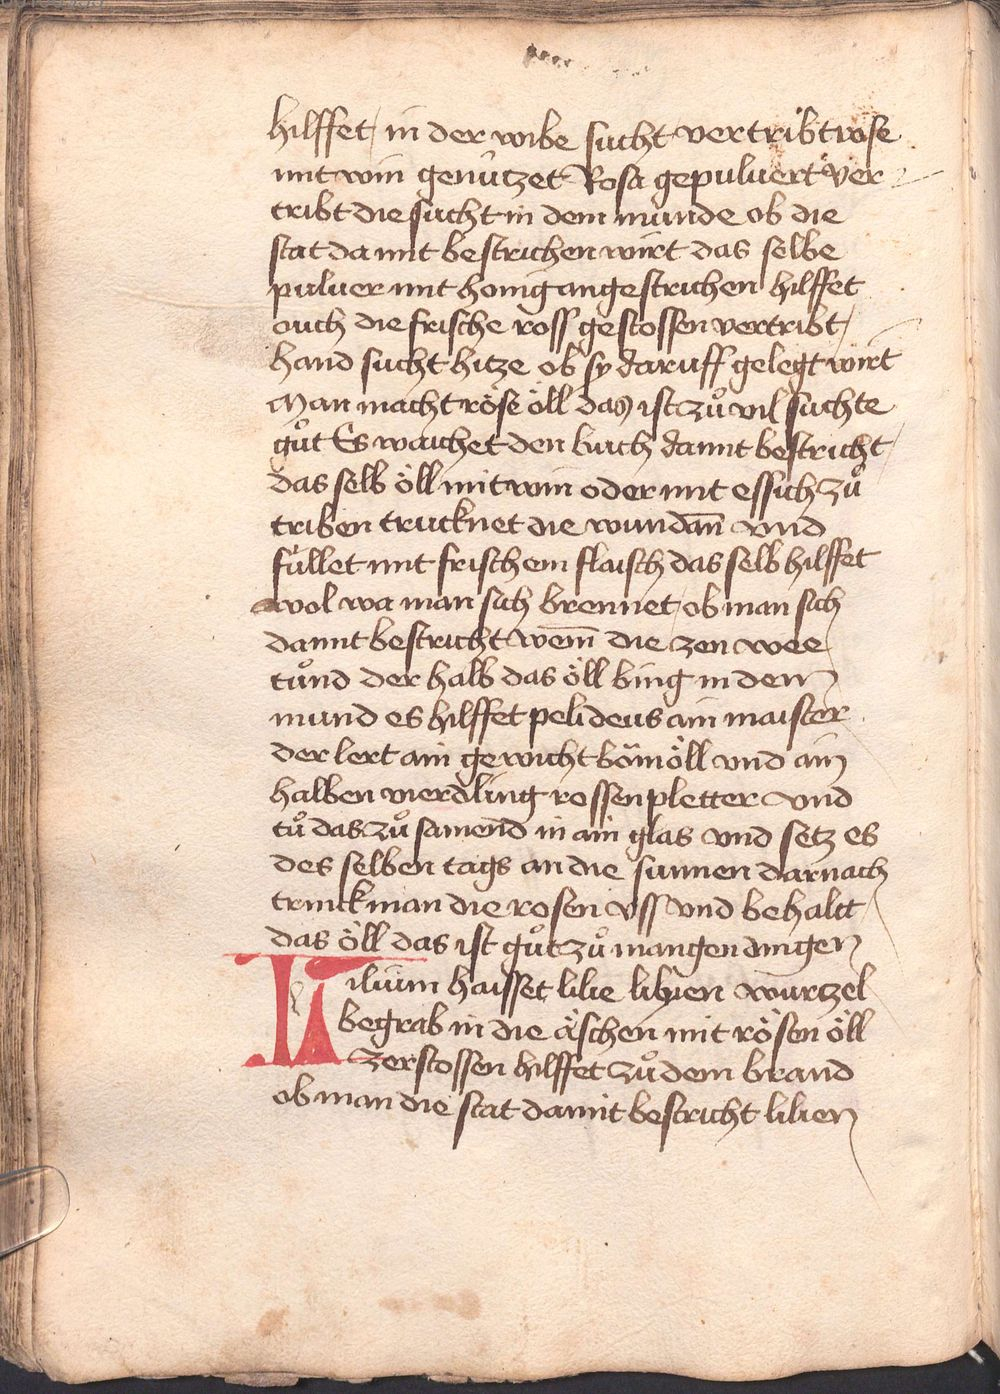 hilffet in der wibe sucht vertribt röse
mit win genützet Rosa gepuluert ver
tribt die sucht in dem munde ob die
stat da mit bestrichen wirt das selbe
puluer mit honig angestrichen hilffet
ouch die frische ross gestossen vertribt
hand sucht hitze ob sy daruff gelegt wirt
Man macht röse öll das ist zů vil suchte
gůt Es waichet den buch damit bestricht
das selb öll mit win oder mit essich zů
triben trucknet die wundan̄ vnd
füllet mit frischem flaisch das selb hilffet
wol wa man sich brennet ob man sich
damit bestricht wem̄ die zen wee
tůnd der halb das öll bing in den
mund es hilffet pelideus ain maister
der lert ain gewicht bömöll vnd ain
halben vierdling rossenpletter vnd
tů das zů samend in ain glas vnd setz es
des selben tags an die sunnen darnach
truck man die rosen vss vnd behalt
das öll das ist gůt zů mangen dingen
Lilium haisset lilie lilyien wurtzel
begrab in die äschen mit rösen öll
zerstossen hilffet zů dem brand
ob man die stat damit bestricht lilien